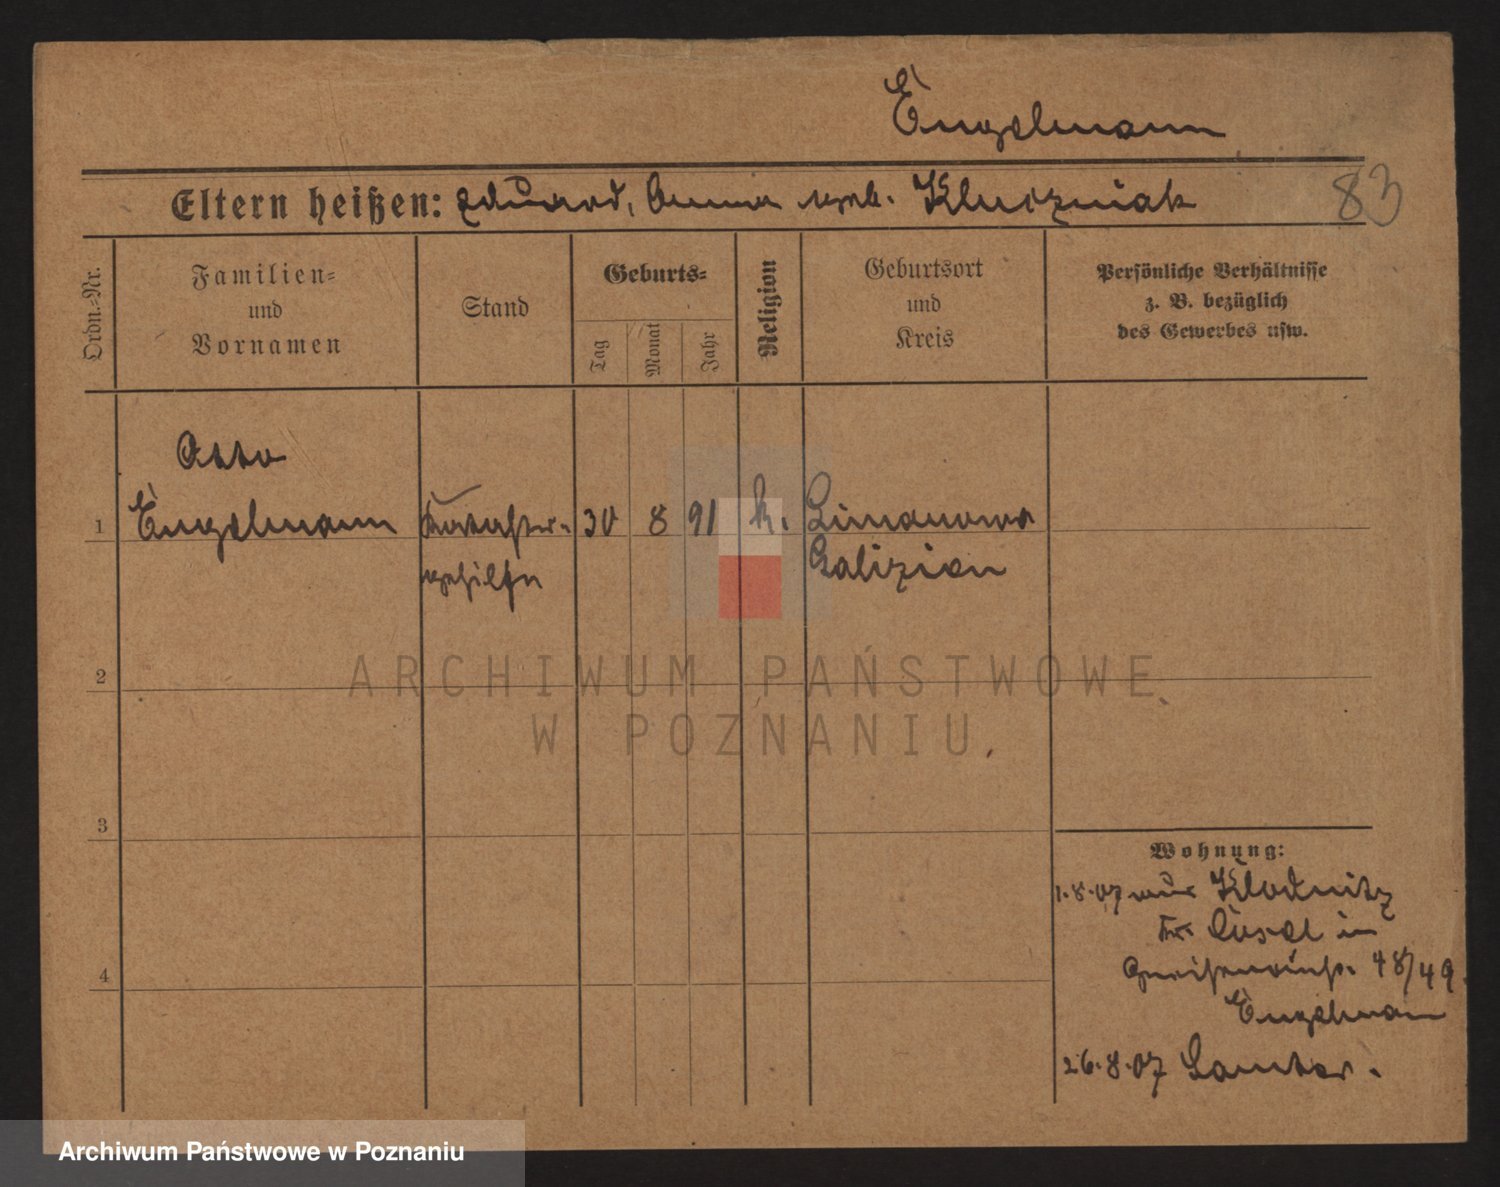 Engelmann
Eltern heißen: Eduard, Anna geb. Kluczniak
83
Ordn.-Nr.
Familien-
und
Vornamen
Stand
Geburts-
Tag
Monat
Jahr
Religion
Geburtsort
und
Kreis
Persönliche Verhältnisse
z. B. bezüglich
des Gewerbes usw.
Otto
1 Engelmann Kataster- 30 8 91 k. Limanowa
gehilfe Galizien
2
ARCHIWUM PAŃSTWOWE
W POZNANIU
3
Wohnung:
1.8.07 aus Klodnitz
Kr. Cosel in
48/49
4
Engelmann
26.8.07 Samter.
Archiwum Państwowe w Poznaniu